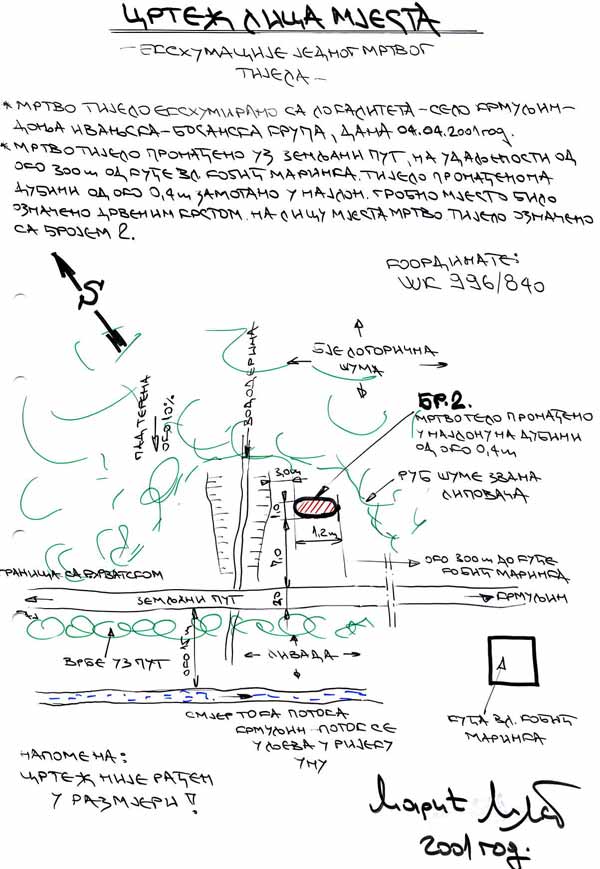 ЦРТЕЖ ЛИЦА МЈЕСТА
— ЕКСХУМАЦИЈЕ ЈЕДНОГ МРТВОГ
ТИЈЕЛА —
* МРТВО ТИЈЕЛО ЕКСХУМИРАНО СА ЛОКАЛИТЕТА – СЕЛО КРМУЉИН –
ДОЊА ИВАЊСКА – БОСАНСКА КРУПА, ДАНА 04.04.2001 год.
* МРТВО ТИЈЕЛО ПРОНАЂЕНО УЗ ЗЕМЉАНИ ПУТ, НА УДАЉЕНОСТИ ОД
ОКО 300 m ОД КУЋЕ ВЛ. КОБИЋ МАРИНКА. ТИЈЕЛО ПРОНАЂЕНО НА
ДУБИНИ ОД ОКО 0,4 m ЗАМОТАНО У НАЈЛОН. ГРОБНО МЈЕСТО БИЛО
ОЗНАЧЕНО ДРВЕНИМ КРСТОМ. НА ЛИЦУ МЈЕСТА МРТВО ТИЈЕЛО ОЗНАЧЕНО
СА БРОЈЕМ 2.
КООРДИНАТЕ:
WK 996/840
S
ПАД ТЕРЕНА
ОКО 10%
ВОДОДЕРИНА
БЈЕЛОГОРИЧНА
ШУМА
БР. 2.
МРТВО ТЕЛО ПРОНАЂЕНО
У НАЈЛОНУ НА ДУБИНИ
ОД ОКО 0,4 m
РУБ ШУМЕ ЗВАНА
ЛИПОВАЧА
3,0 m
1,0
1,2 m
7,0
ОКО 300 m ДО КУЋЕ
КОБИЋ МАРИНКА
ГРАНИЦА СА ХРВАТСКОМ
ЗЕМЉАНИ ПУТ
КРМУЉИН
ВРБЕ УЗ ПУТ
ОКО 15 m
ЛИВАДА
СМЈЕР ТОКА ПОТОКА
КРМУЉИН – ПОТОК СЕ
УЛИЕВА У РИЈЕКУ
УНУ
КУЋА ВЛ. КОБИЋ
МАРИНКА
НАПОМЕНА:
ЦРТЕЖ НИЈЕ РАЂЕН
У РАЗМЈЕРИ!
2001 год.